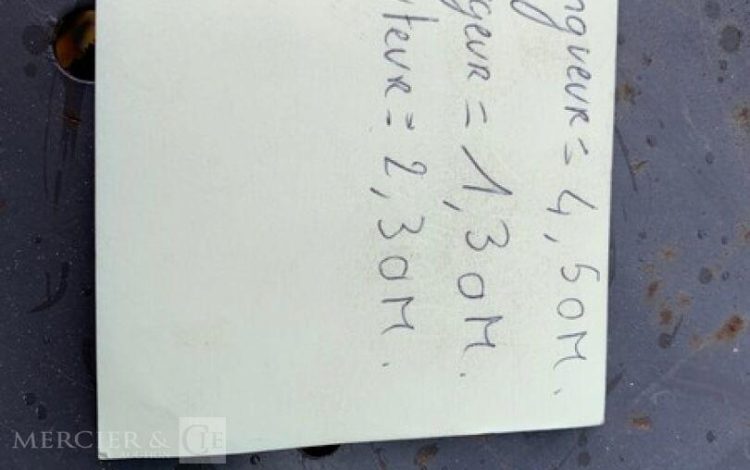 ngueur = 4,50M.
geur = 1,30M.
uteur = 2,30M.
MERCIER & CIE